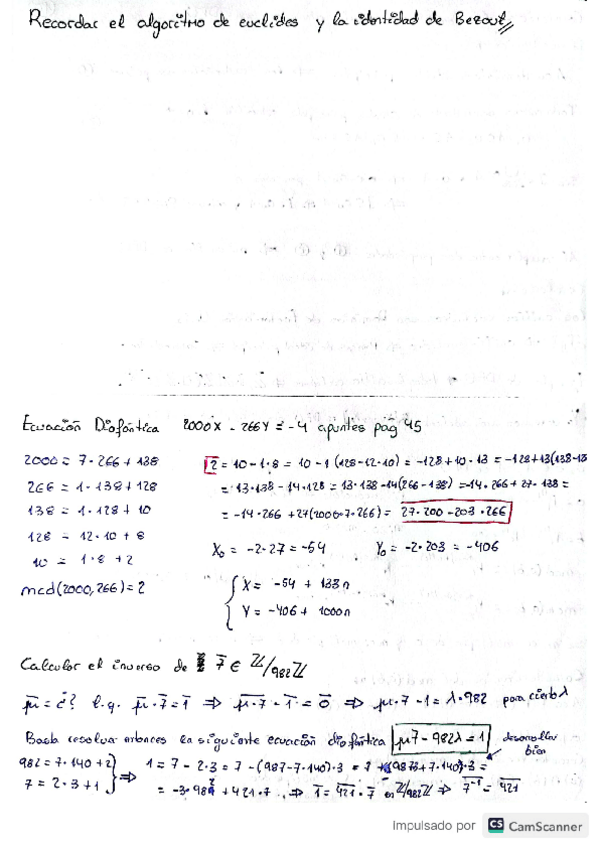 Recordar el algoritmo de euclides y la identidad de Bezout
Ecuación Diofántica 2000X - 266Y = -4 apuntes pag 45
2000 = 7·266 + 138
266 = 1·138 + 128
138 = 1·128 + 10
128 = 12·10 + 8
10 = 1·8 + 2
mcd(2000,266) = 2
2 = 10 - 1·8 = 10 - 1(128-12·10) = -128 + 10·13 = -128+13(138-13
= 13·138 - 14·128 = 13·138 - 14(266-138) = -14·266 + 27·138 =
= -14·266 + 27(2000-7·266) = 27·200 - 203·266
X₀ = -2·27 = -54 Y₀ = -2·203 = -406
X = -54 + 133n
Y = -406 + 1000n
Calcular el inverso de 7 ∈ ℤ/982ℤ
μ = ¿? t.q. μ·7 = 1 ⇒ μ·7 - 1 = 0 ⇒ μ·7 - 1 = λ·982 para cierto λ
Basta resolver entonces la siguiente ecuación diofántica μ7 - 982λ = 1 desarrollar bien
982 = 7·140 + 2
7 = 2·3 + 1
⇒ 1 = 7 - 2·3 = 7 - (987-7·140)·3 = 7 + 7·140)·3 =
= -3·98 + 421·7 ⇒ 1 = 421·7 en ℤ/982ℤ ⇒ 7⁻¹ = 421
Impulsado por CS CamScanner